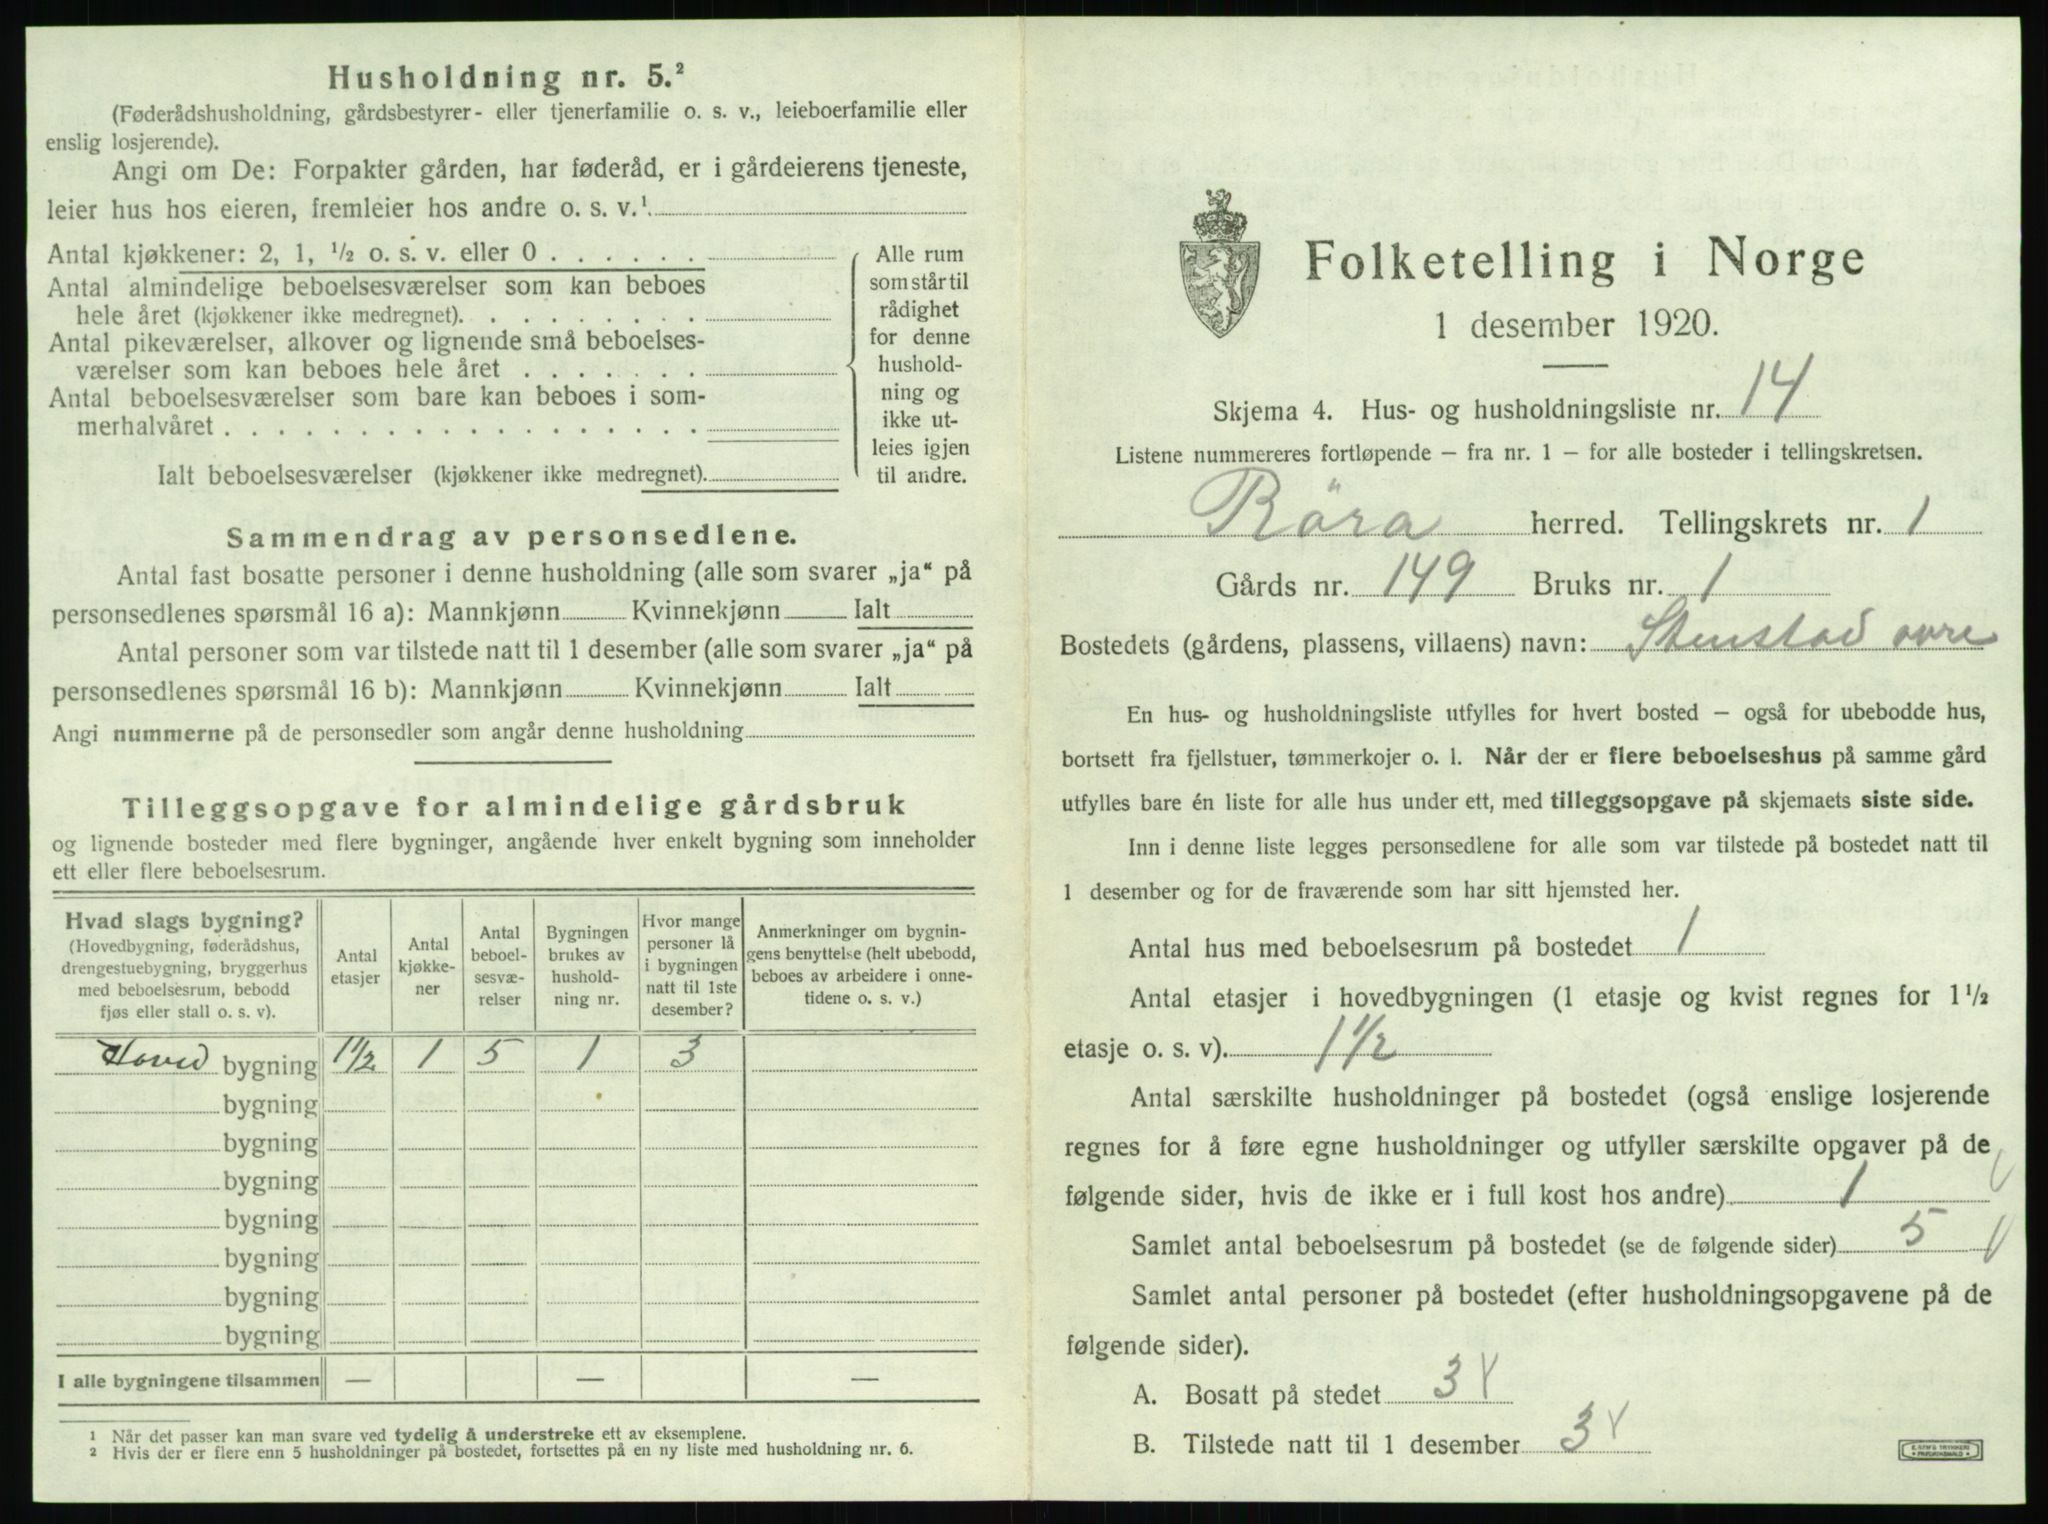 Husholdning nr. 5.²
(Føderådshusholdning, gårdsbestyrer- eller tjenerfamilie o. s. v., leieboerfamilie eller
enslig losjerende).
Angi om De: Forpakter gården, har føderåd, er i gårdeierens tjeneste,
leier hus hos eieren, fremleier hos andre o. s. v.¹
Antal kjøkkener: 2, 1, ½ o. s. v. eller 0 . . . . . .
Antal almindelige beboelsesværelser som kan beboes
hele året (kjøkkener ikke medregnet). . . . . . . . .
Antal pikeværelser, alkover og lignende små beboelses-
værelser som kan beboes hele året . . . . . . .
Antal beboelsesværelser som bare kan beboes i som-
merhalvåret . . . . . . . . . . . . . . . . . .
Ialt beboelsesværelser (kjøkkener ikke medregnet).
Alle rum
som står til
rådighet
for denne
hushold-
ning og
ikke ut-
leies igjen
til andre.
Sammendrag av personsedlene.
Antal fast bosatte personer i denne husholdning (alle som svarer „ja“ på
personsedlenes spørsmål 16 a): Mannkjønn Kvinnekjønn Ialt
Antal personer som var tilstede natt til 1 desember (alle som svarer „ja“ på
personsedlenes spørsmål 16 b): Mannkjønn Kvinnekjønn Ialt
Angi nummerne på de personsedler som angår denne husholdning
Tilleggsopgave for almindelige gårdsbruk
og lignende bosteder med flere bygninger, angående hver enkelt bygning som inneholder
ett eller flere beboelsesrum.
Hvad slags bygning?
(Hovedbygning, føderådshus,
drengestuebygning, bryggerhus
med beboelsesrum, bebodd
fjøs eller stall o. s. v).
Antal
etasjer
Antal
kjøkke-
ner
Antal
beboel-
sesvæ-
relser
Bygningen
brukes av
hushold-
ning nr.
Hvor mange
personer lå
i bygningen
natt til 1ste
desember?
Anmerkninger om bygnin-
gens benyttelse (helt ubebodd,
beboes av arbeidere i onne-
tidene o. s. v.)
Hoved bygning 1½ 1 5 1 3
bygning
bygning
bygning
bygning
bygning
bygning
bygning
I alle bygningene tilsammen — — —
¹ Når det passer kan man svare ved tydelig å understreke ett av eksemplene.
² Hvis der er flere enn 5 husholdninger på bostedet, fortsettes på en ny liste med husholdning nr. 6.
Folketelling i Norge
1 desember 1920.
Skjema 4. Hus- og husholdningsliste nr. 14
Listene nummereres fortløpende — fra nr. 1 — for alle bosteder i tellingskretsen.
Röra herred. Tellingskrets nr. 1
Gårds nr. 149 Bruks nr. 1
Bostedets (gårdens, plassens, villaens) navn: Stenstad övre
En hus- og husholdningsliste utfylles for hvert bosted — også for ubebodde hus,
bortsett fra fjellstuer, tømmerkojer o. l. Når der er flere beboelseshus på samme gård
utfylles bare én liste for alle hus under ett, med tilleggsopgave på skjemaets siste side.
Inn i denne liste legges personsedlene for alle som var tilstede på bostedet natt til
1 desember og for de fraværende som har sitt hjemsted her.
Antal hus med beboelsesrum på bostedet 1
Antal etasjer i hovedbygningen (1 etasje og kvist regnes for 1½
etasje o. s. v). 1½
Antal særskilte husholdninger på bostedet (også enslige losjerende
regnes for å føre egne husholdninger og utfyller særskilte opgaver på de
følgende sider, hvis de ikke er i full kost hos andre) 1
Samlet antal beboelsesrum på bostedet (se de følgende sider) 5
Samlet antal personer på bostedet (efter husholdningsopgavene på de
følgende sider).
A. Bosatt på stedet 3
B. Tilstede natt til 1 desember 3